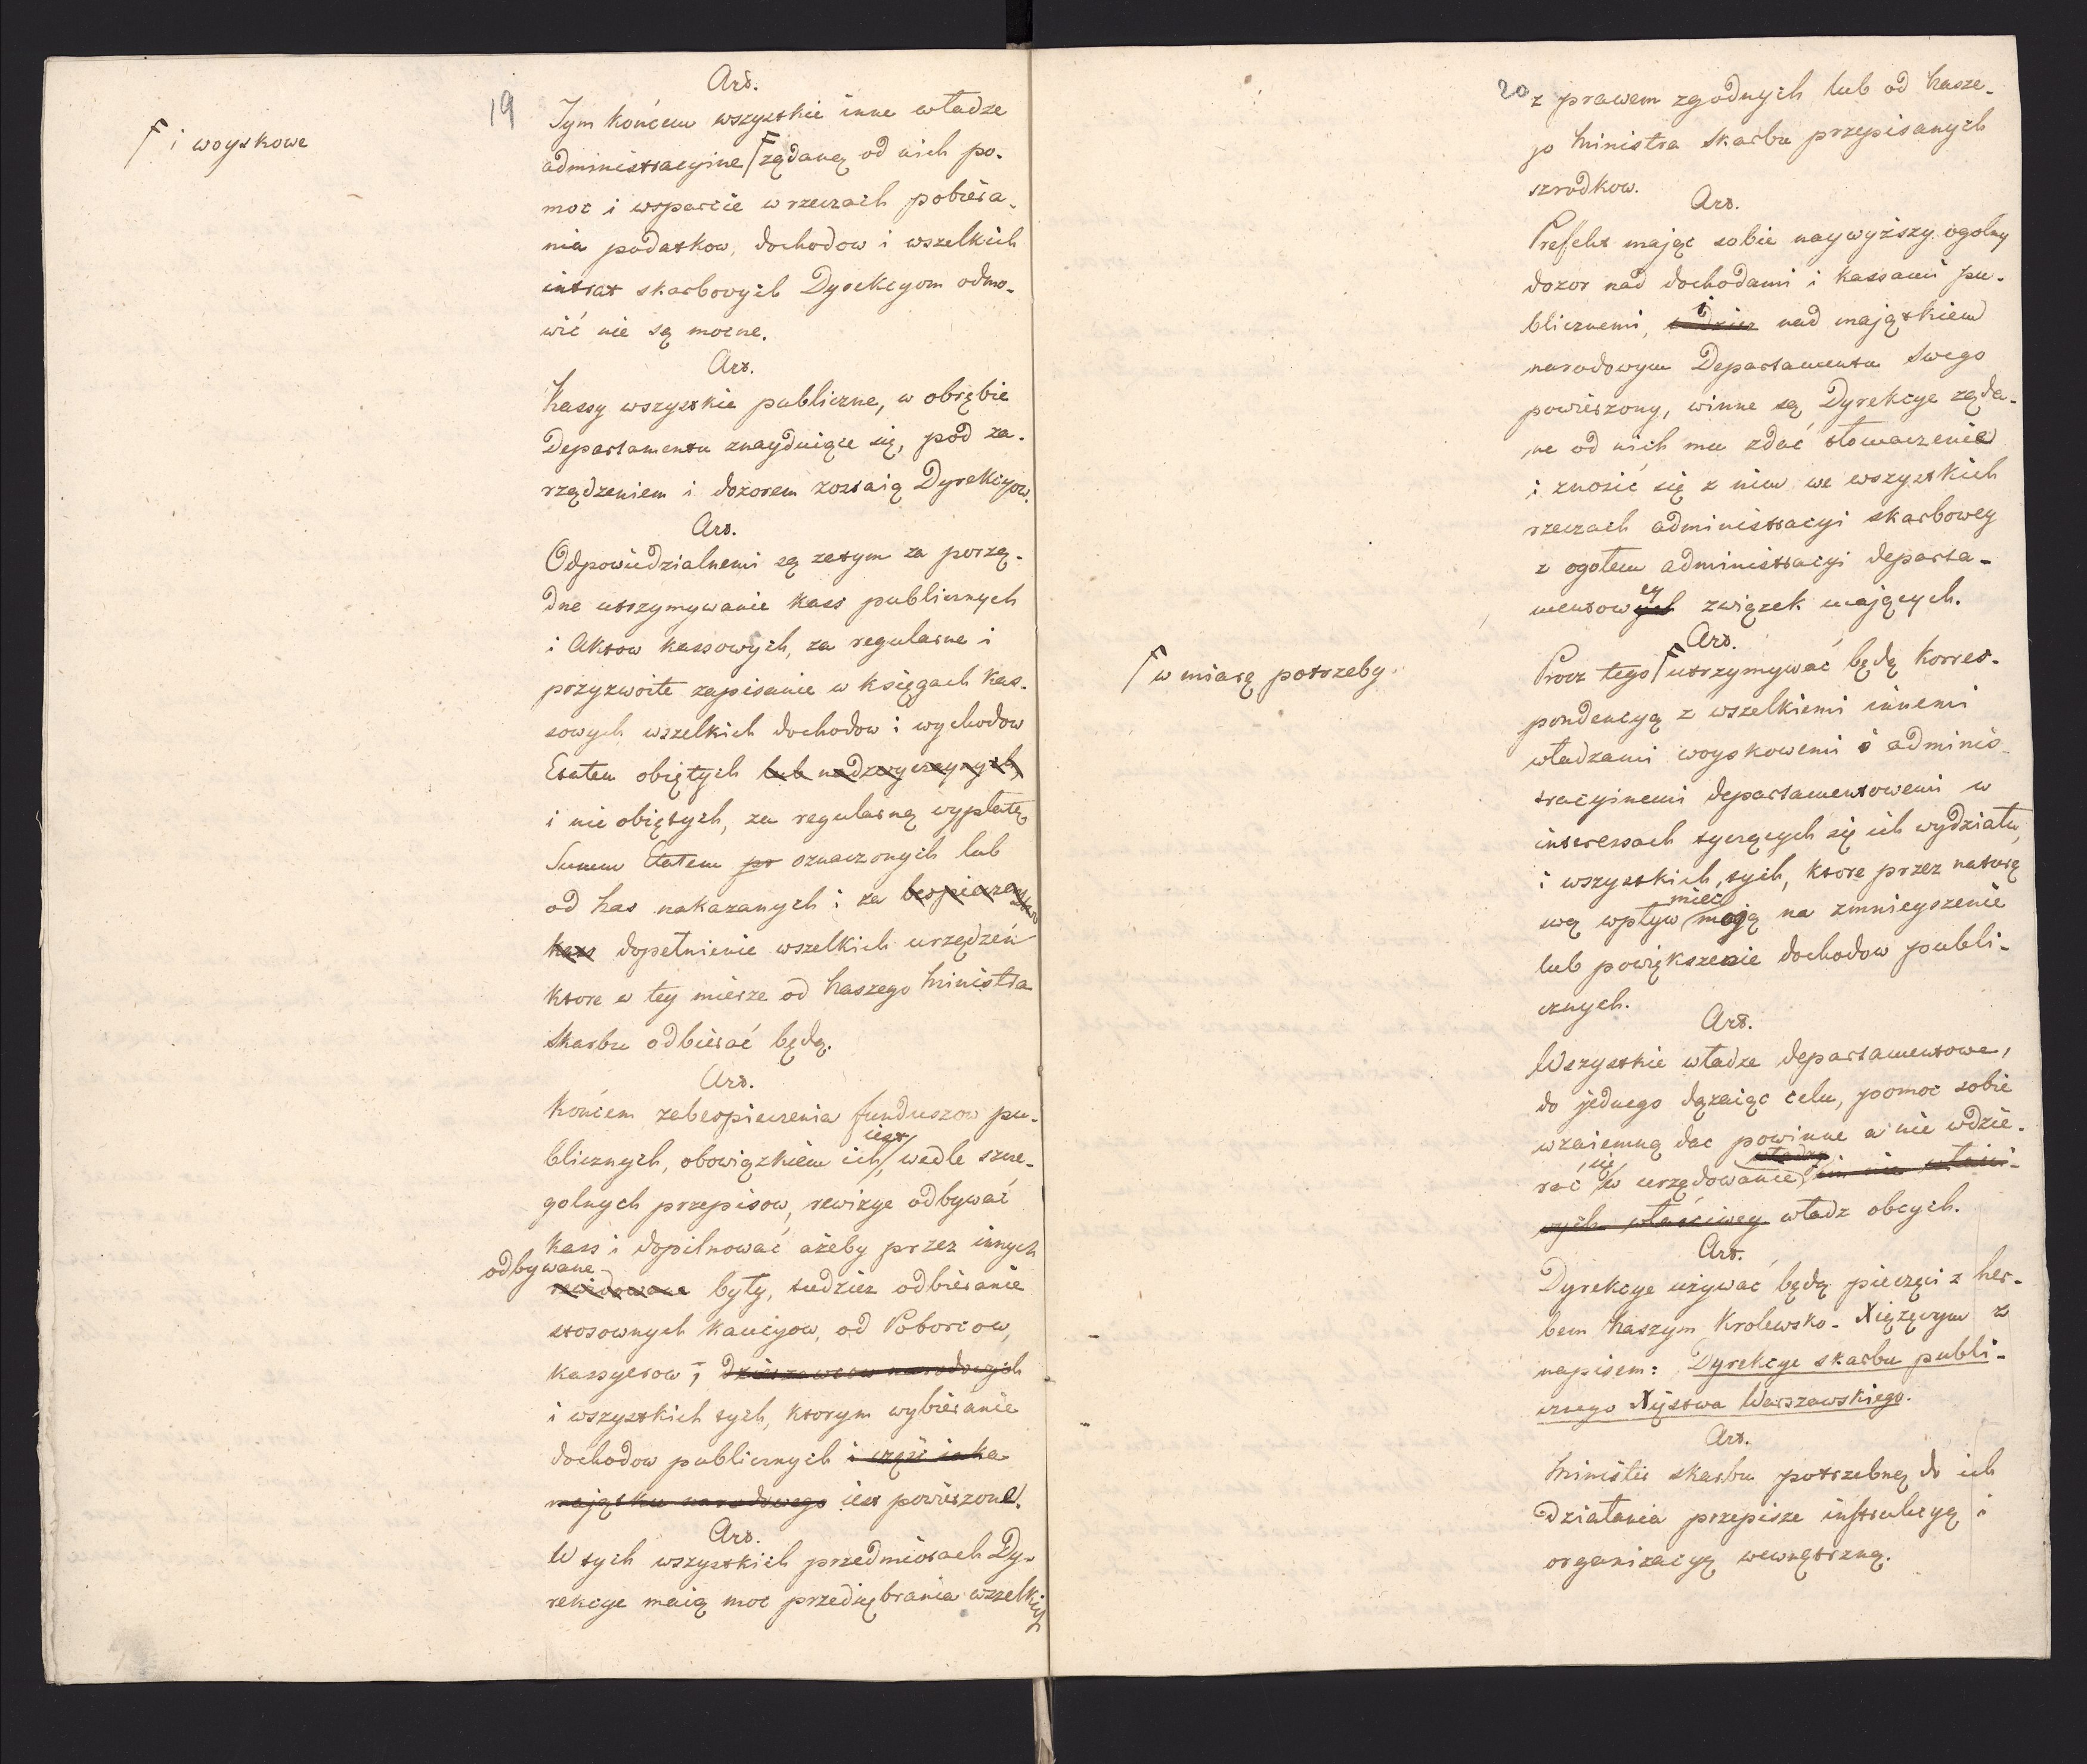 19
Art.
Tym końcem wszystkie inne władze
administracyine Γ żądaną od nich po-
Γ i woyskowe
moc i wsparcie w rzeczach pobiera-
nia podatkow, dochodow i wszelkich
intrat skarbowych Dyrekcyom odmo-
wić nie są mocne.
Art.
Kassy wszystkie publiczne, w obrębie
Departamentu znayduiące się, pod za-
rządzeniem i dozorem zostaią Dyrekcyow.
Art.
Odpowiedzialnemi są zatym za porzą-
dne utrzymywanie kass publicznych
i Aktow kassowych, za regularne i
przyzwoite zapisanie w księgach kas-
sowych wszelkich dochodow i wychodow
Etatem obiętych lub nadzwyczaynych,
i nie obiętych, za regularną wypłatę
Summ Etatem pr oznaczonych lub
od Nas nakazanych i za bespieczeństwo
kass dopełnienie wszelkich urządzeń
ktore w tey mierze od Naszego Ministra
Skarbu odbierać będą.
Art.
Końcem zabespieczenia funduszow pu-
blicznych, obowiązkiem ich iest, wedle szcze-
golnych przepisow, rewizye odbywać
kass i dopilnować ażeby przez innych
odbywane
rewidowane były, tudzież odbieranie
stosownych kaucyow, od Poborcow,
kassyerow, i dzierzawcow narodowych
i wszystkich tych, ktorym wybieranie
dochodow publicznych i część iaka
majątku narodowego iest powierzone.
Art.
W tych wszystkich przedmiotach Dy-
rekcye maią moc przedsiębrania wszelkich
20
z prawem zgodnych lub od Nasze-
go Ministra Skarbu przepisanych
szrodkow.
Art.
Prefekt mając sobie naywyższy ogolny
dozor nad dochodami i kassami pu-
blicznemi, tudzież i nad majątkiem
narodowym Departamentu swego
powierzony, winne są Dyrekcye żąda-
ne od nich mu zdać tłomaczenie
i znosić się z nim we wszystkich
rzeczach administracyi skarbowey
z ogołem administracyi departa-
mentowych ey związek mających.
Art.
Procz tego Γ utrzymywać będą korres-
Γ w miarę potrzeby
pondencyą z wszelkiemi innemi
władzami woyskowemi i adminis-
tracyinemi departamentowemi w
interessach tyczących się ich wydziału,
i wszystkich tych, ktore przez naturę
swą wpływ mieć mogą na zmnieyszenie
lub powiększenie dochodow publi-
cznych.
Art.
Wszystkie władze departamentowe,
do jednego dążaiąc celu, pomoc sobie
wzaiemną dac powinne a nie wdzie-
rać się w urzędowanie władzy im nie właści-
wych właściwey władz obcych.
Art.
Dyrekcye używać będą pieczęci z her-
bem Naszym Krolewsko-Xiążęcym z
napisem: Dyrekcye skarbu publi-
cznego Xięstwa Warszawskiego.
Art.
Minister skarbu potrzebną do ich
działania przepisze instrukcyą i
organizacyą wewnętrzną.